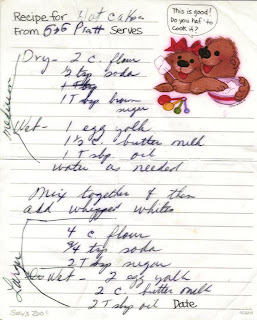 Recipe for Hot Cakes
From Serves
This is good!
Do you haf' to
cook it?
medium
Dry- 2 c. flour
1/2 tsp soda
1 T brown
sugar
Wet- 1 egg yolk
1 1/2 c. butter milk
1 T oil
water as needed
Mix together & then
add whipped whites
Larger
4 c. flour
3/4 tsp soda
2 T sugar
Wet - 2 egg yolk
2 c. butter milk
2 T oil Date
Suzy's Zoo